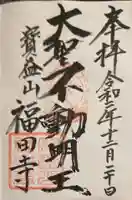 奉拝
令和二年十二月二十日
大聖不動明王
寶金山
福田寺